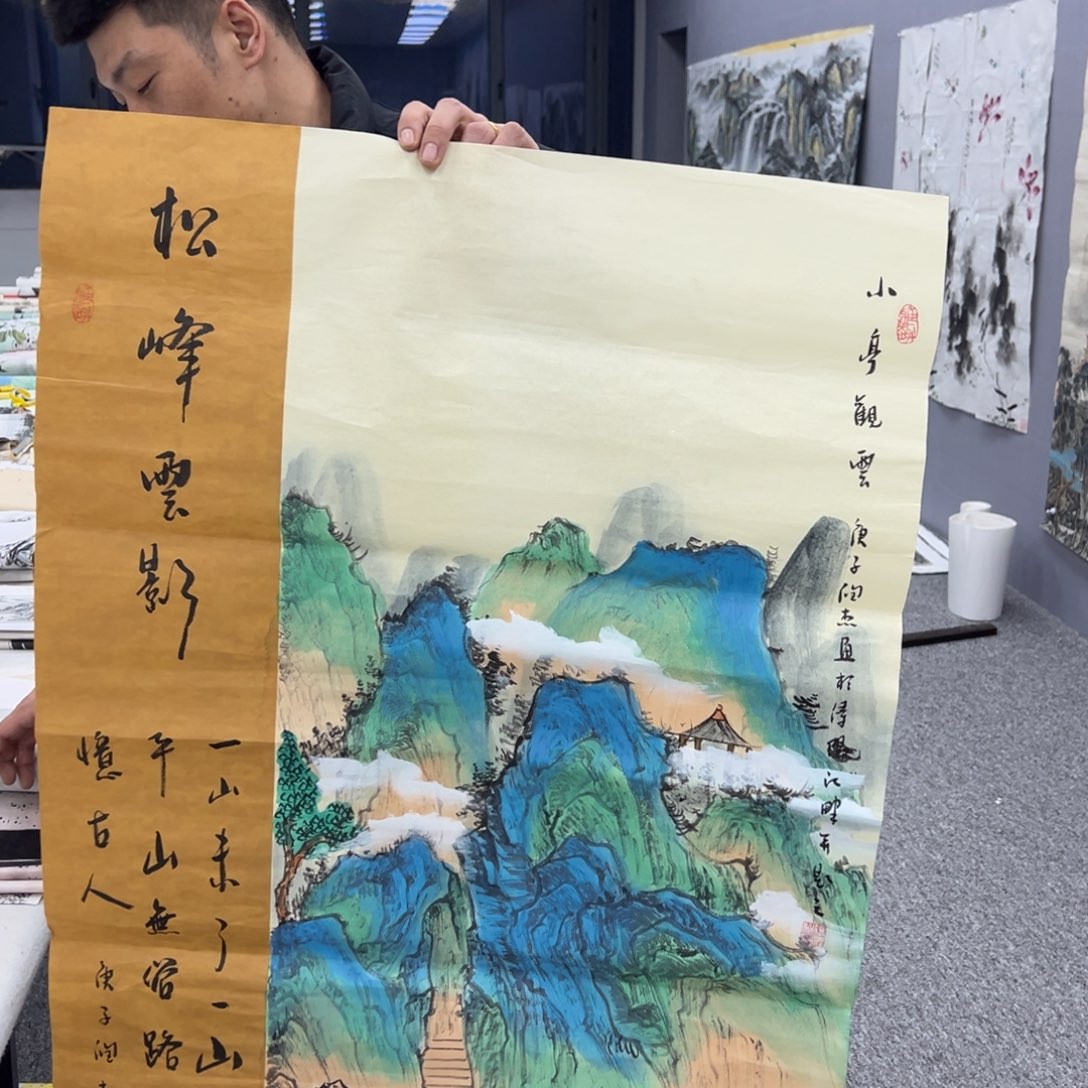 小亭觀雲
庚子陶杰画於潯陽江畔并題
松峰雲影
一山未了一山
平山無俗路
憶古人
庚子陶